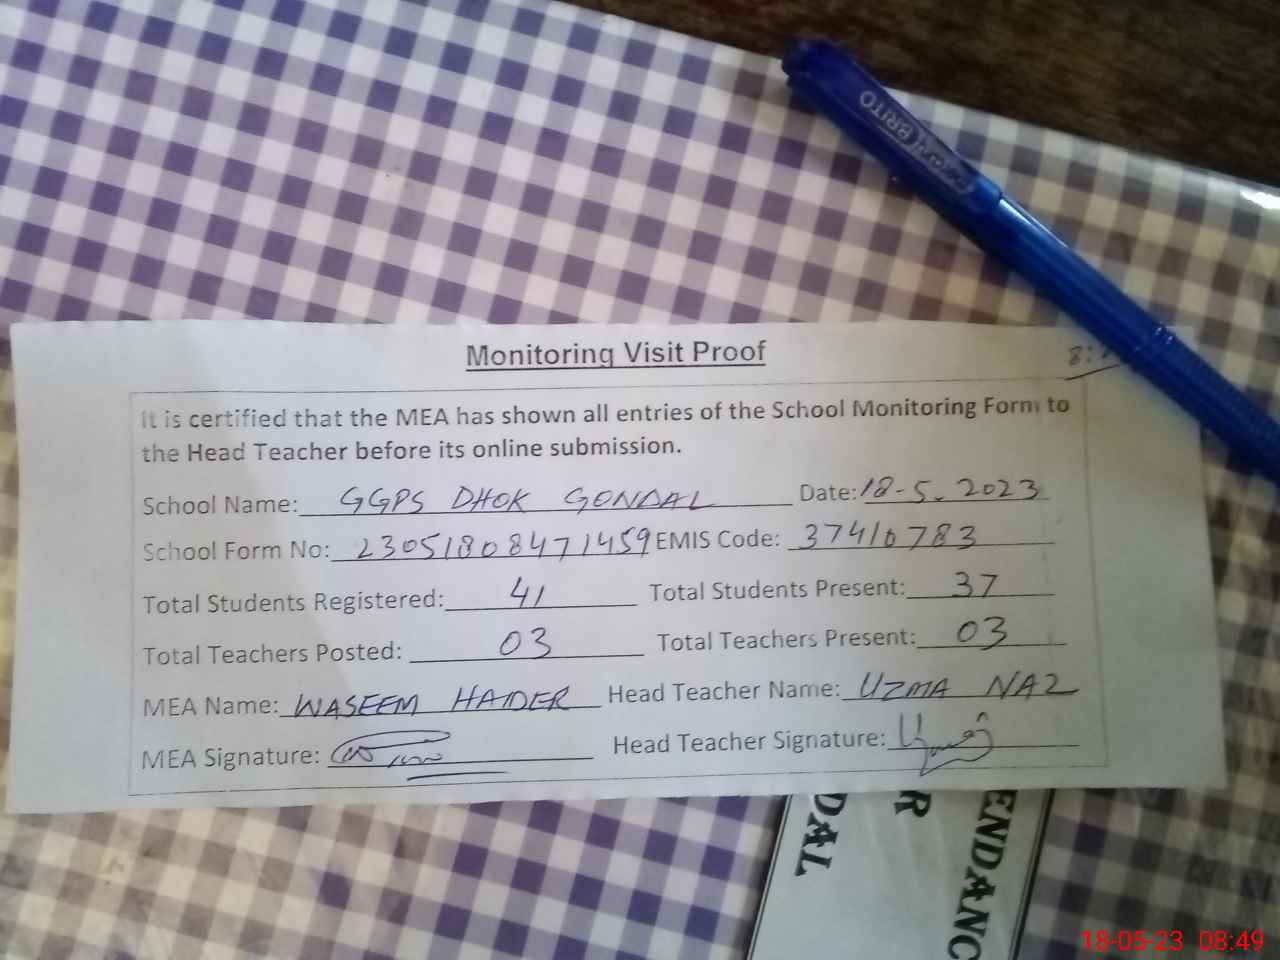 Piano BRITO
Monitoring Visit Proof
It is certified that the MEA has shown all entries of the School Monitoring Form to
the Head Teacher before its online submission.
School Name: GGPS DHOK GONDAL Date: 18-5-2023
School Form No: 23051808471459 EMIS Code: 37410783
Total Students Registered: 41 Total Students Present: 37
Total Teachers Posted: 03 Total Teachers Present: 03
MEA Name: WASEEM HAIDER Head Teacher Name: UZMA NAZ
MEA Signature: Head Teacher Signature:
DAL
R
ENDANC
18-05-23 08:49